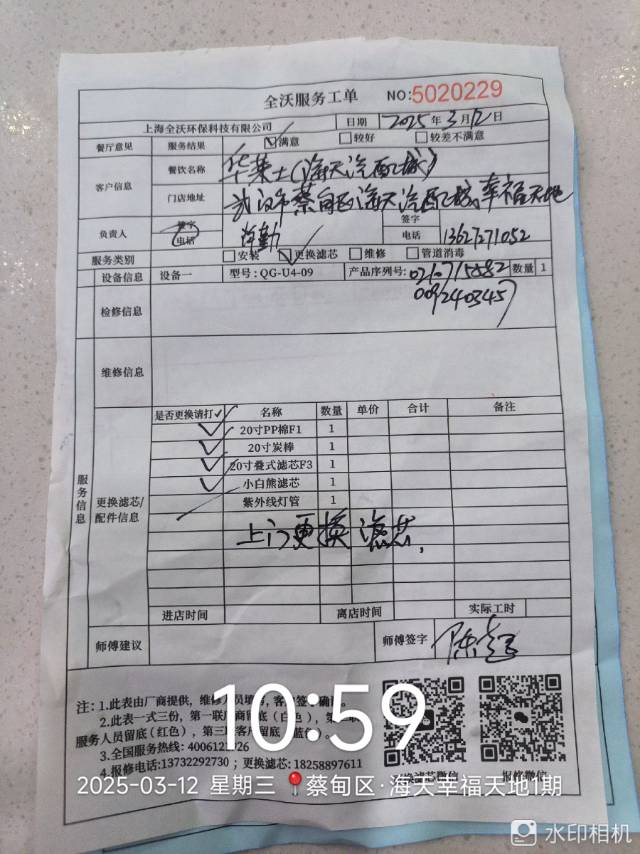 全沃服务工单 NO:5020229
上海全沃环保科技有限公司 日期 2025年3月12日
餐厅意见 服务结果 ☑满意 □较好 □较差不满意
客户信息 餐饮名称 华莱士(海天汽配城)
门店地址 武汉市蔡甸区海天汽配城幸福天地
负责人 签字 电话 签字 电话 13627271052
服务类别 □安装 ☑更换滤芯 □维修 □管道消毒
设备信息 设备一 型号: QG-U4-09 产品序列号: 数量 1
009240345
检修信息
维修信息
服务信息
更换滤芯/配件信息
是否更换请打✓ 名称 数量 单价 合计 备注
✓ 20寸PP棉F1 1
✓ 20寸炭棒 1
✓ 20寸叠式滤芯F3 1
✓ 小白熊滤芯 1
紫外线灯管 1
上门更换滤芯,
进店时间 离店时间 实际工时
师傅建议 师傅签字
注: 1.此表由厂商提供,
2.此表一式三份,
服务人员留底(红色),
3.全国服务热线:
4.报修电话:13732292730 ; 更换滤芯: 18258897611
更换滤芯微信 报修微信
10:59
2025-03-12 星期三 蔡甸区·海天幸福天地1期
水印相机